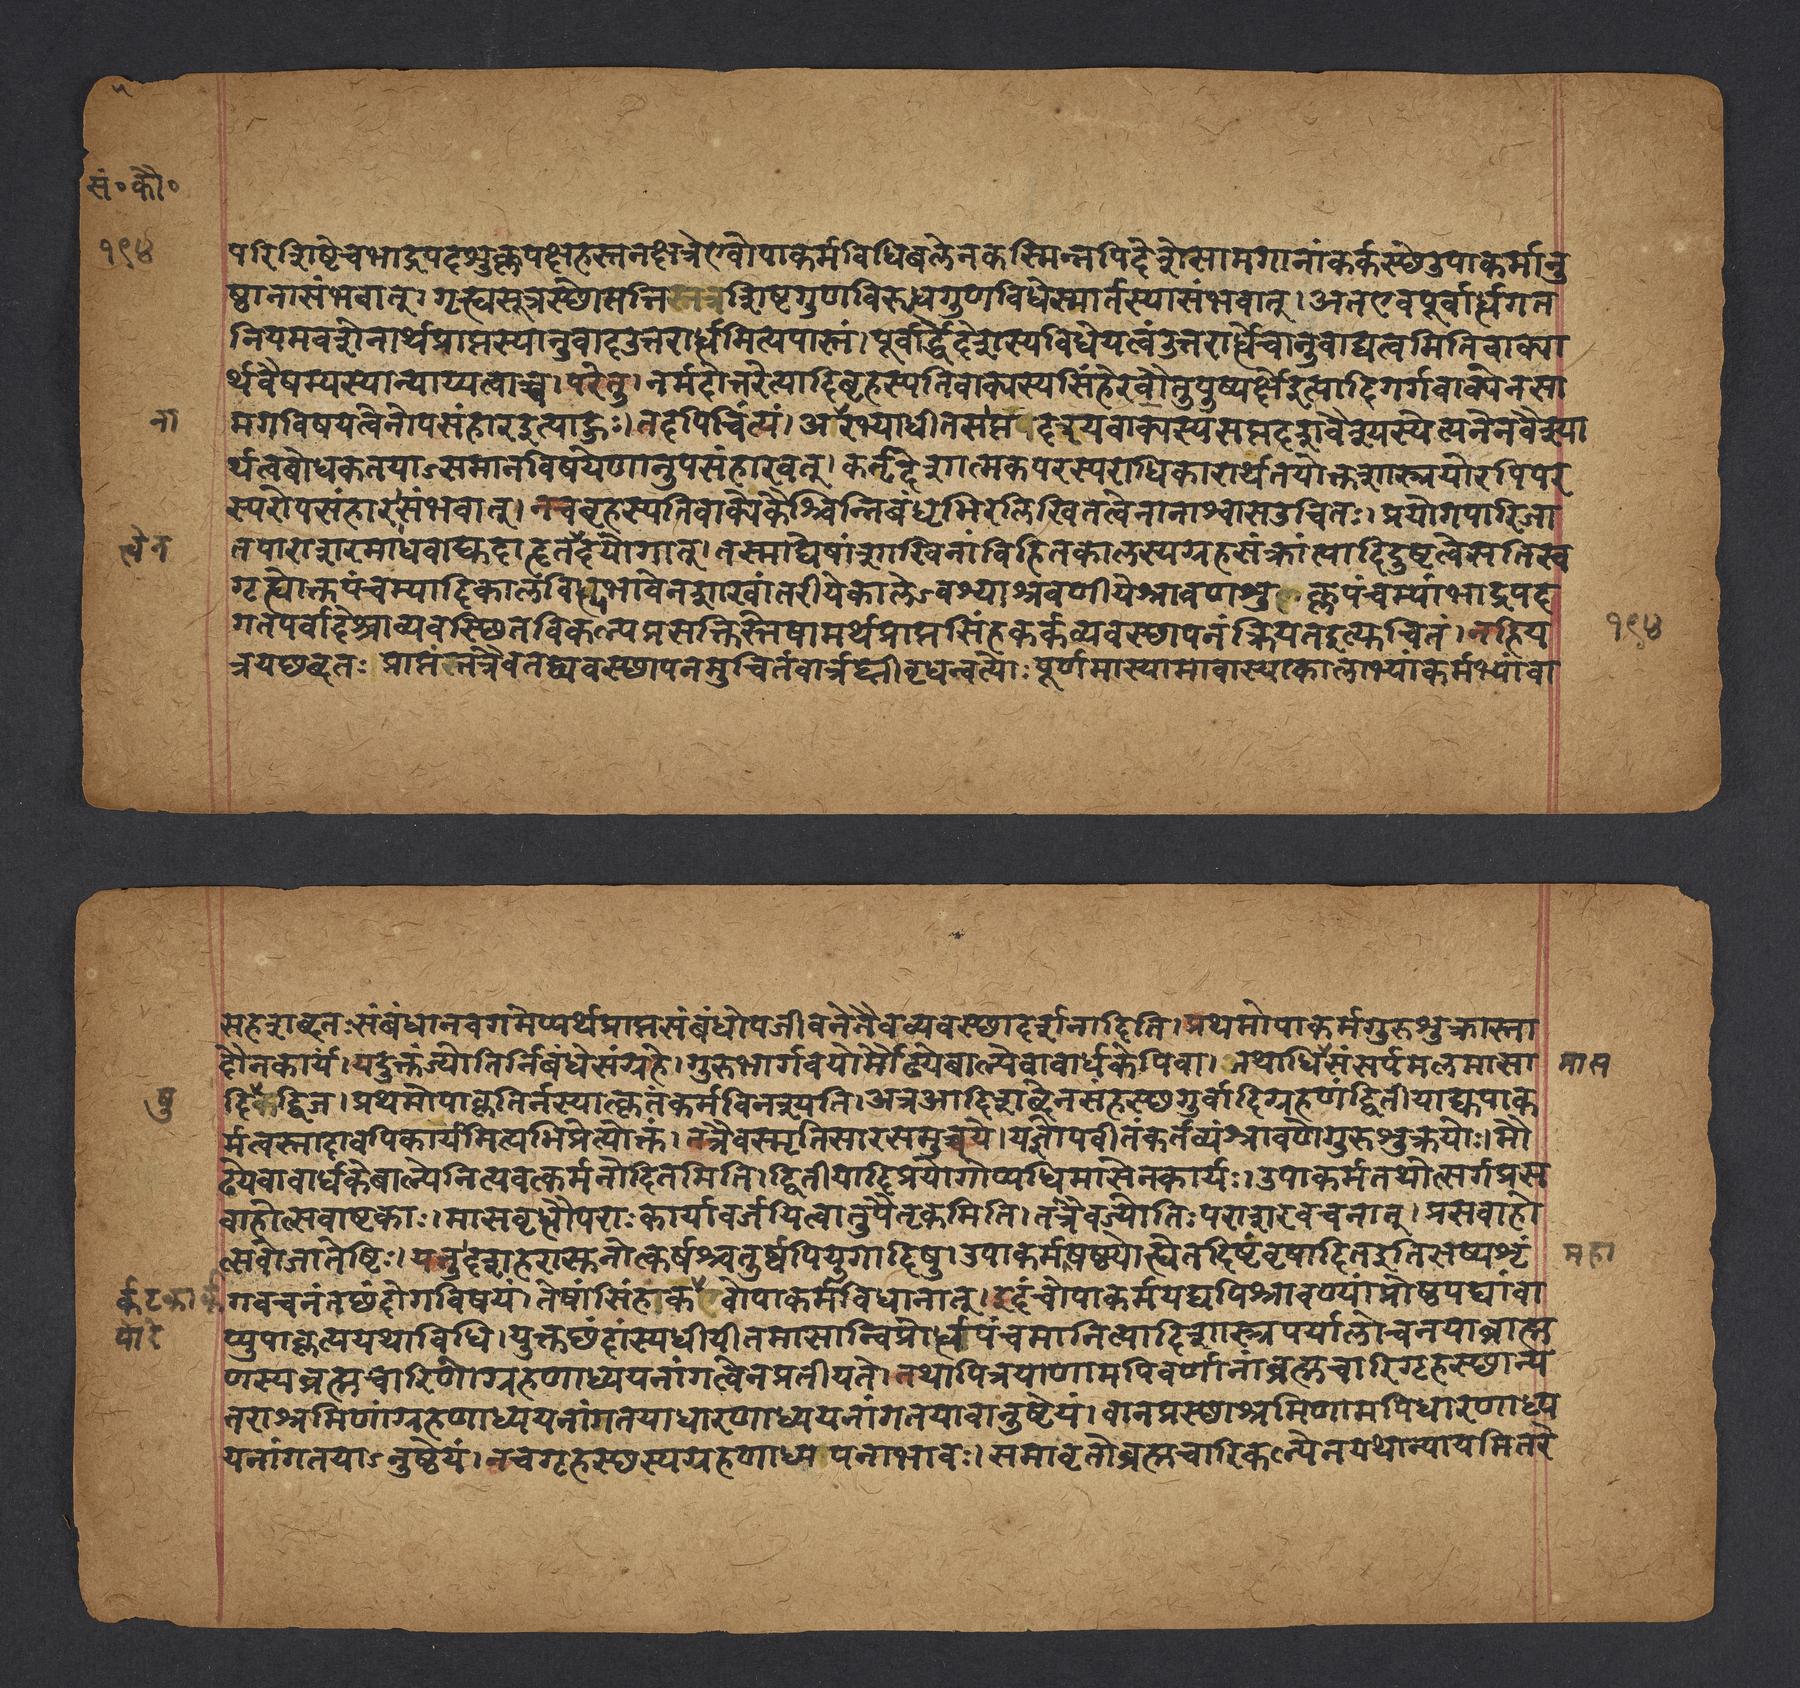 सं॰कौ॰
१९४
परिशिष्टेचभाद्रपदशुक्लपक्षहस्तनक्षत्रेएवोपाकर्मविधिबलेनकस्मिन्नपिदेशेसामगानांकर्कस्थेउपाकर्मानु
ष्ठानासंभवात्। गृह्यसूत्रस्थोत्पत्तिशिष्टगुणविरुद्धगुणविधेस्मार्तस्यासंभवात्। अतएवपूर्वार्द्धगत
नियमवशेनार्थप्राप्तस्यानुवादउत्तरार्द्धमित्यपास्तं। पूर्वार्द्धेदेशस्यविधेयत्वंउत्तरार्द्धेचानुवाद्यत्वमितिवाक्या
र्थवैषम्यस्यान्याय्यत्वाच्च। परेतु। नर्मदोत्तरेत्यादिबृहस्पतिवाक्यस्यसिंहेरवौतुपुष्यर्क्षेइत्यादिगर्गवाक्येनसा
मगविषयत्वेनोपसंहारइत्याहुः। तदपिचिंत्यं। अ रभ्याधीतसप्तदश्यवाक्यस्यसप्तदशवैश्यस्येत्यनेनवैश्या
ना
र्थत्वबोधकतयाऽसमानविषयेणानुपसंहारवत्। कर्तृदेशात्मकपरस्पराधिकारार्थतयोक्तशास्त्रयोरपिपर
स्परोपसंहारसंभवात्। नचबृहस्पतिवाक्येकैश्चिन्निबंधृभिरलिखितत्वेनानाश्वासउचितः। प्रयोगपारिजा
तपाराशरमाधवाद्युदाहृतदयोगात्। तस्माद्येषांशाखिनांविहितकालस्यग्रहसंक्रांत्यादिदुष्टत्वेसतिस्व
त्वेन
गृह्योक्तपंचम्यादिकालविध्यभावेनशाखांतरीयेकालेऽवश्याश्रवणीयेश्रावणशुक्लपंचम्यांभाद्रपद
गतपर्वादेश्चाव्यवस्थितविकल्पप्रसक्तिस्तेषामर्थप्राप्तसिंहकर्कव्यवस्थापनंक्रियतइत्युचितं। नहिय
१९४
त्रयच्छब्दतः प्राप्तंतत्रैवतद्व्यवस्थापनमुचितंवार्त्रघ्नीवृधन्वत्योः पूर्णमास्यामावास्याकालाभ्यांकर्मभ्यांवा
सहशब्दतःसंबंधानवगमेप्यर्थप्राप्तसंबंधोपजीवनेनैवव्यवस्थादर्शनादिति। प्रथमोपाकर्मगुरुशुक्रास्ता
दौनकार्यं। यदुक्तंज्योतिर्निबंधेसंग्रहे। गुरुभार्गवयोर्मौढ्येबाल्येवावार्धकेपिवा। तथाधिसंसर्पमलमासा
मास
दिषुद्विज। प्रथमोपाकृतिर्नस्यात्कृतंकर्मविनश्यति। अत्रआदिशब्देनसंहस्थगुर्वादिग्रहणंद्वितीयाद्युपाक
षु
र्मत्वस्तादावपिकार्यमित्यभिप्रेत्योक्तं। तत्रैवस्मृतिसारसमुच्चये। यज्ञोपवीतंकर्तव्यंश्रावणेगुरुशुक्रयोः। मौ
ढ्येवावार्धकेबाल्येनित्यवत्कर्मनोदितमिति। द्वितीयादिप्रयोगोप्यधिमासेनकार्यः। उपाकर्मतथोत्सर्गप्रस
वाहोत्सवाष्टकाः। मासवृद्धौपराःकार्यावर्जयित्वातुपैतृकमिति। तत्रैवज्योतिःपराशरवचनात्। प्रसवाहो
त्सवोजातेष्टिः। यत्तुदशहरासुनोत्कर्षश्चतुर्ष्वपियुगादिषु। उपाकर्मषष्ठ्योर्ह्येतदिष्टंवृषादितइतिऋष्यशृं
महा
गवचनंतच्छंदोगविषयं। तेषांसिंहार्केएवोपाकर्मविधानात्। इदंचोपाकर्मयद्यपिश्रावण्यांप्रौष्ठपद्यांवा
प्युपाकृत्ययथाविधि। युक्तश्छंदांस्यधीयीतमासान्विप्रोर्द्धपंचमानित्यादिशास्त्रपर्यालोचनयाब्राह्म
पादे
णस्यब्रह्मचारिणोग्रहणाध्ययनांगत्वेनप्रतीयते। तथापित्रयाणामपिवर्णानांब्रह्मचारिगृहस्थान्य
तराश्रमिणांग्रहणाध्ययनांगतयाधारणाध्ययनांगतयावानुष्ठेयं। वानप्रस्थाश्रमिणामपिधारणाध्य
यनांगतयाऽनुष्ठेयं। नचगृहस्थस्यग्रहणाध्यपनाभावः। समावृत्तोब्रह्मचारिकल्पेनयथान्यायमितरे